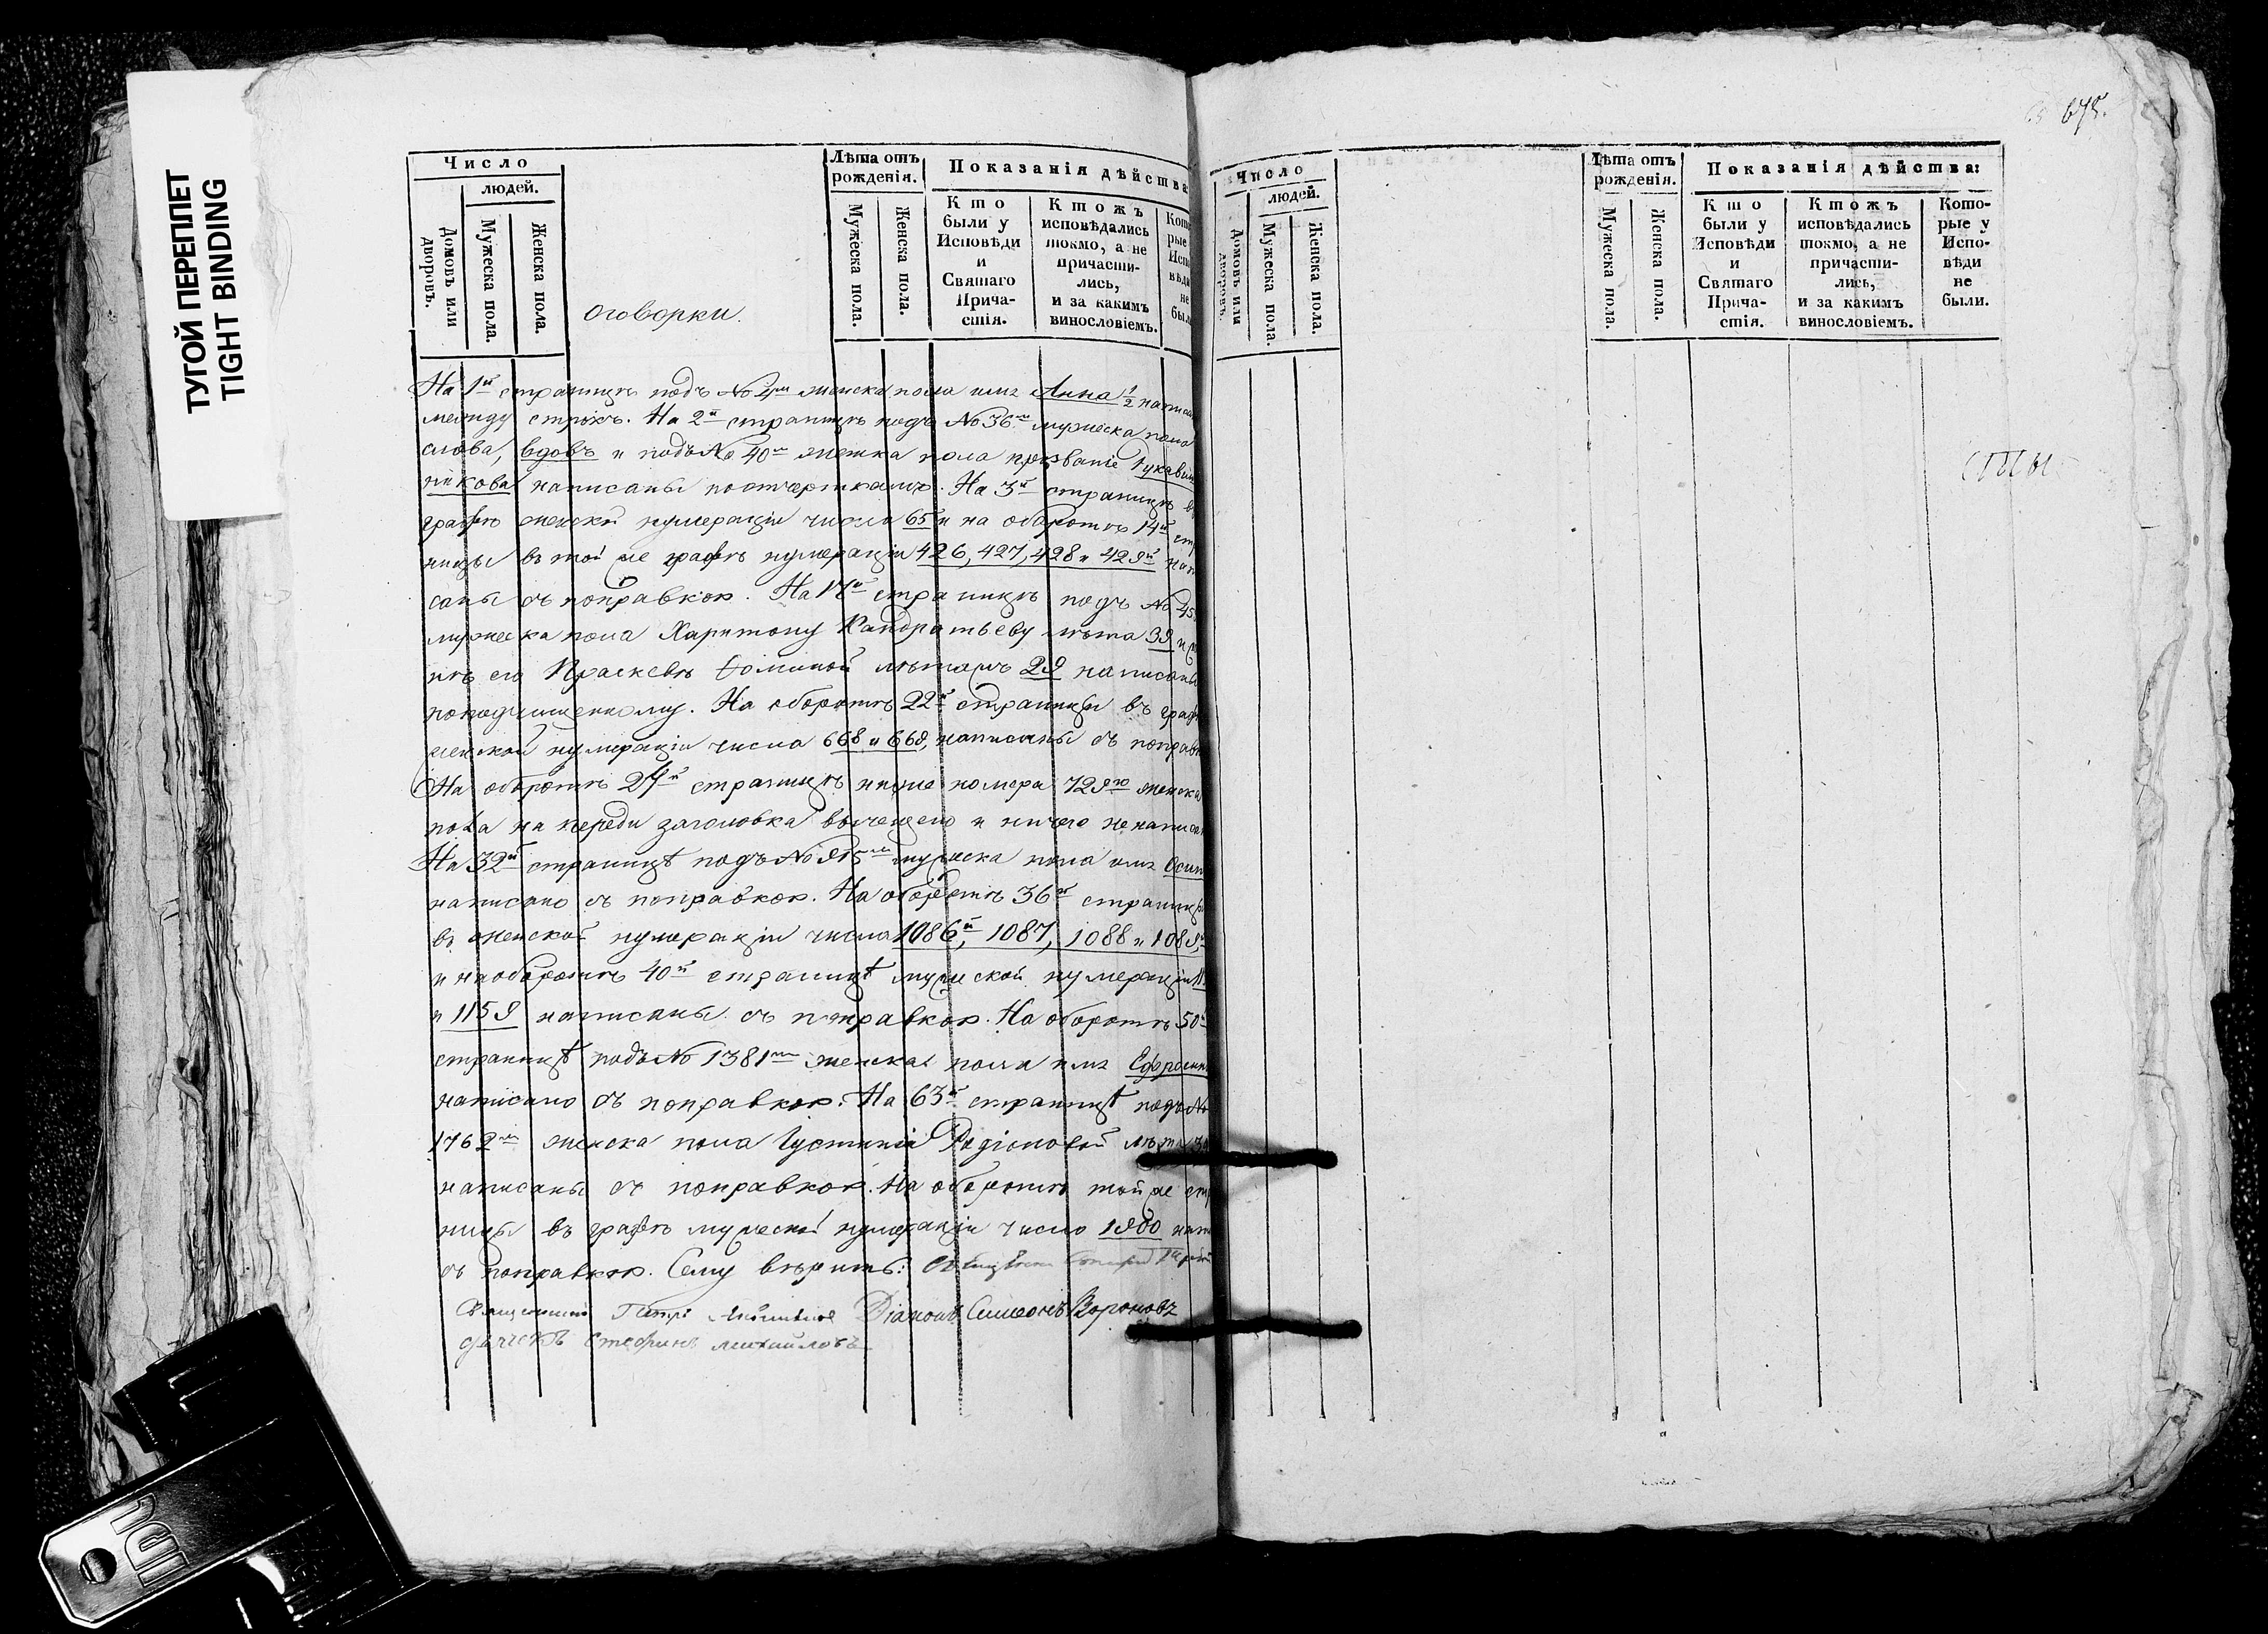 ТУГОЙ ПЕРЕПЛЕТ
TIGHT BINDING
Число
людей.
Домовъ или дворовъ.
Мужеска пола.
Женска пола.
Оговорки.
Лѣта отъ рожденія.
Мужеска пола.
Женска пола.
Показанія дѣйства:
Кто были у Исповѣди и Святаго Причастія.
Ктожъ исповѣдались токмо, а не причастились, и за какимъ винословіемъ.
На 1й страницѣ подъ № 4м женска пола имя Анна 1/2 написа
между строкъ. На 2й страницѣ подъ № 36м мужеска пола
слова, вдовъ и подъ № 40м женска пола прозваніе Рукавиш
никова написаны по отчерткамъ. На 3й страницѣ въ
графѣ женской нумераціи числа 65 и на оборотѣ 14й стр
ницы въ той же графѣ нумераціи 426, 427, 428 и 429й напи
саны съ поправкою. На 17й страницѣ подъ № 45
мужеска пола Харитону Кандратьеву лѣта 39 и
нѣ его Праскевѣ Фоминой лѣтамъ 29 написаны
поподчищенному. На оборотѣ 22й страницы въ граф
женской нумераціи числа 668 и 669, написаны съ поправк
На оборотѣ 27й страницѣ ниже номера 729го женска
пола на переди заголовка вычещено и ничего ненаписан
На 32й страницѣ подъ № 915м мужеска пола имя Осип
написано съ поправкою. На оборотѣ 36й страницы
въ женской нумераціи числа 1086й, 1087, 1088 и 1089й
и на оборотѣ 40й страницѣ мужеской нумераціи 11
и 1159 написаны съ поправкою. На оборотѣ 50й
страницѣ подъ № 1381м женска пола имя Ефросинь
написано съ поправкою. На 63й страницѣ подъ №
1762м женска пола Іустиніи Родіоновой лѣта
написаны съ поправкою. На оборотѣ той же стр
ницы въ графѣ мужеской нумераціи число 1900 нап
съ поправкою. Сему вѣрить:
Священникъ Петръ Діаконъ Симеонъ Вороновъ
дьячекъ Стефанъ Михайловъ
675.
Число
людей.
Домовъ или дворовъ.
Мужеска пола.
Женска пола.
Лѣта отъ рожденія.
Мужеска пола.
Женска пола.
Показанія дѣйства:
Кто были у Исповѣди и Святаго Причастія.
Ктожъ исповѣдались токмо, а не причастились, и за какимъ винословіемъ.
Которые у Исповѣди не были.